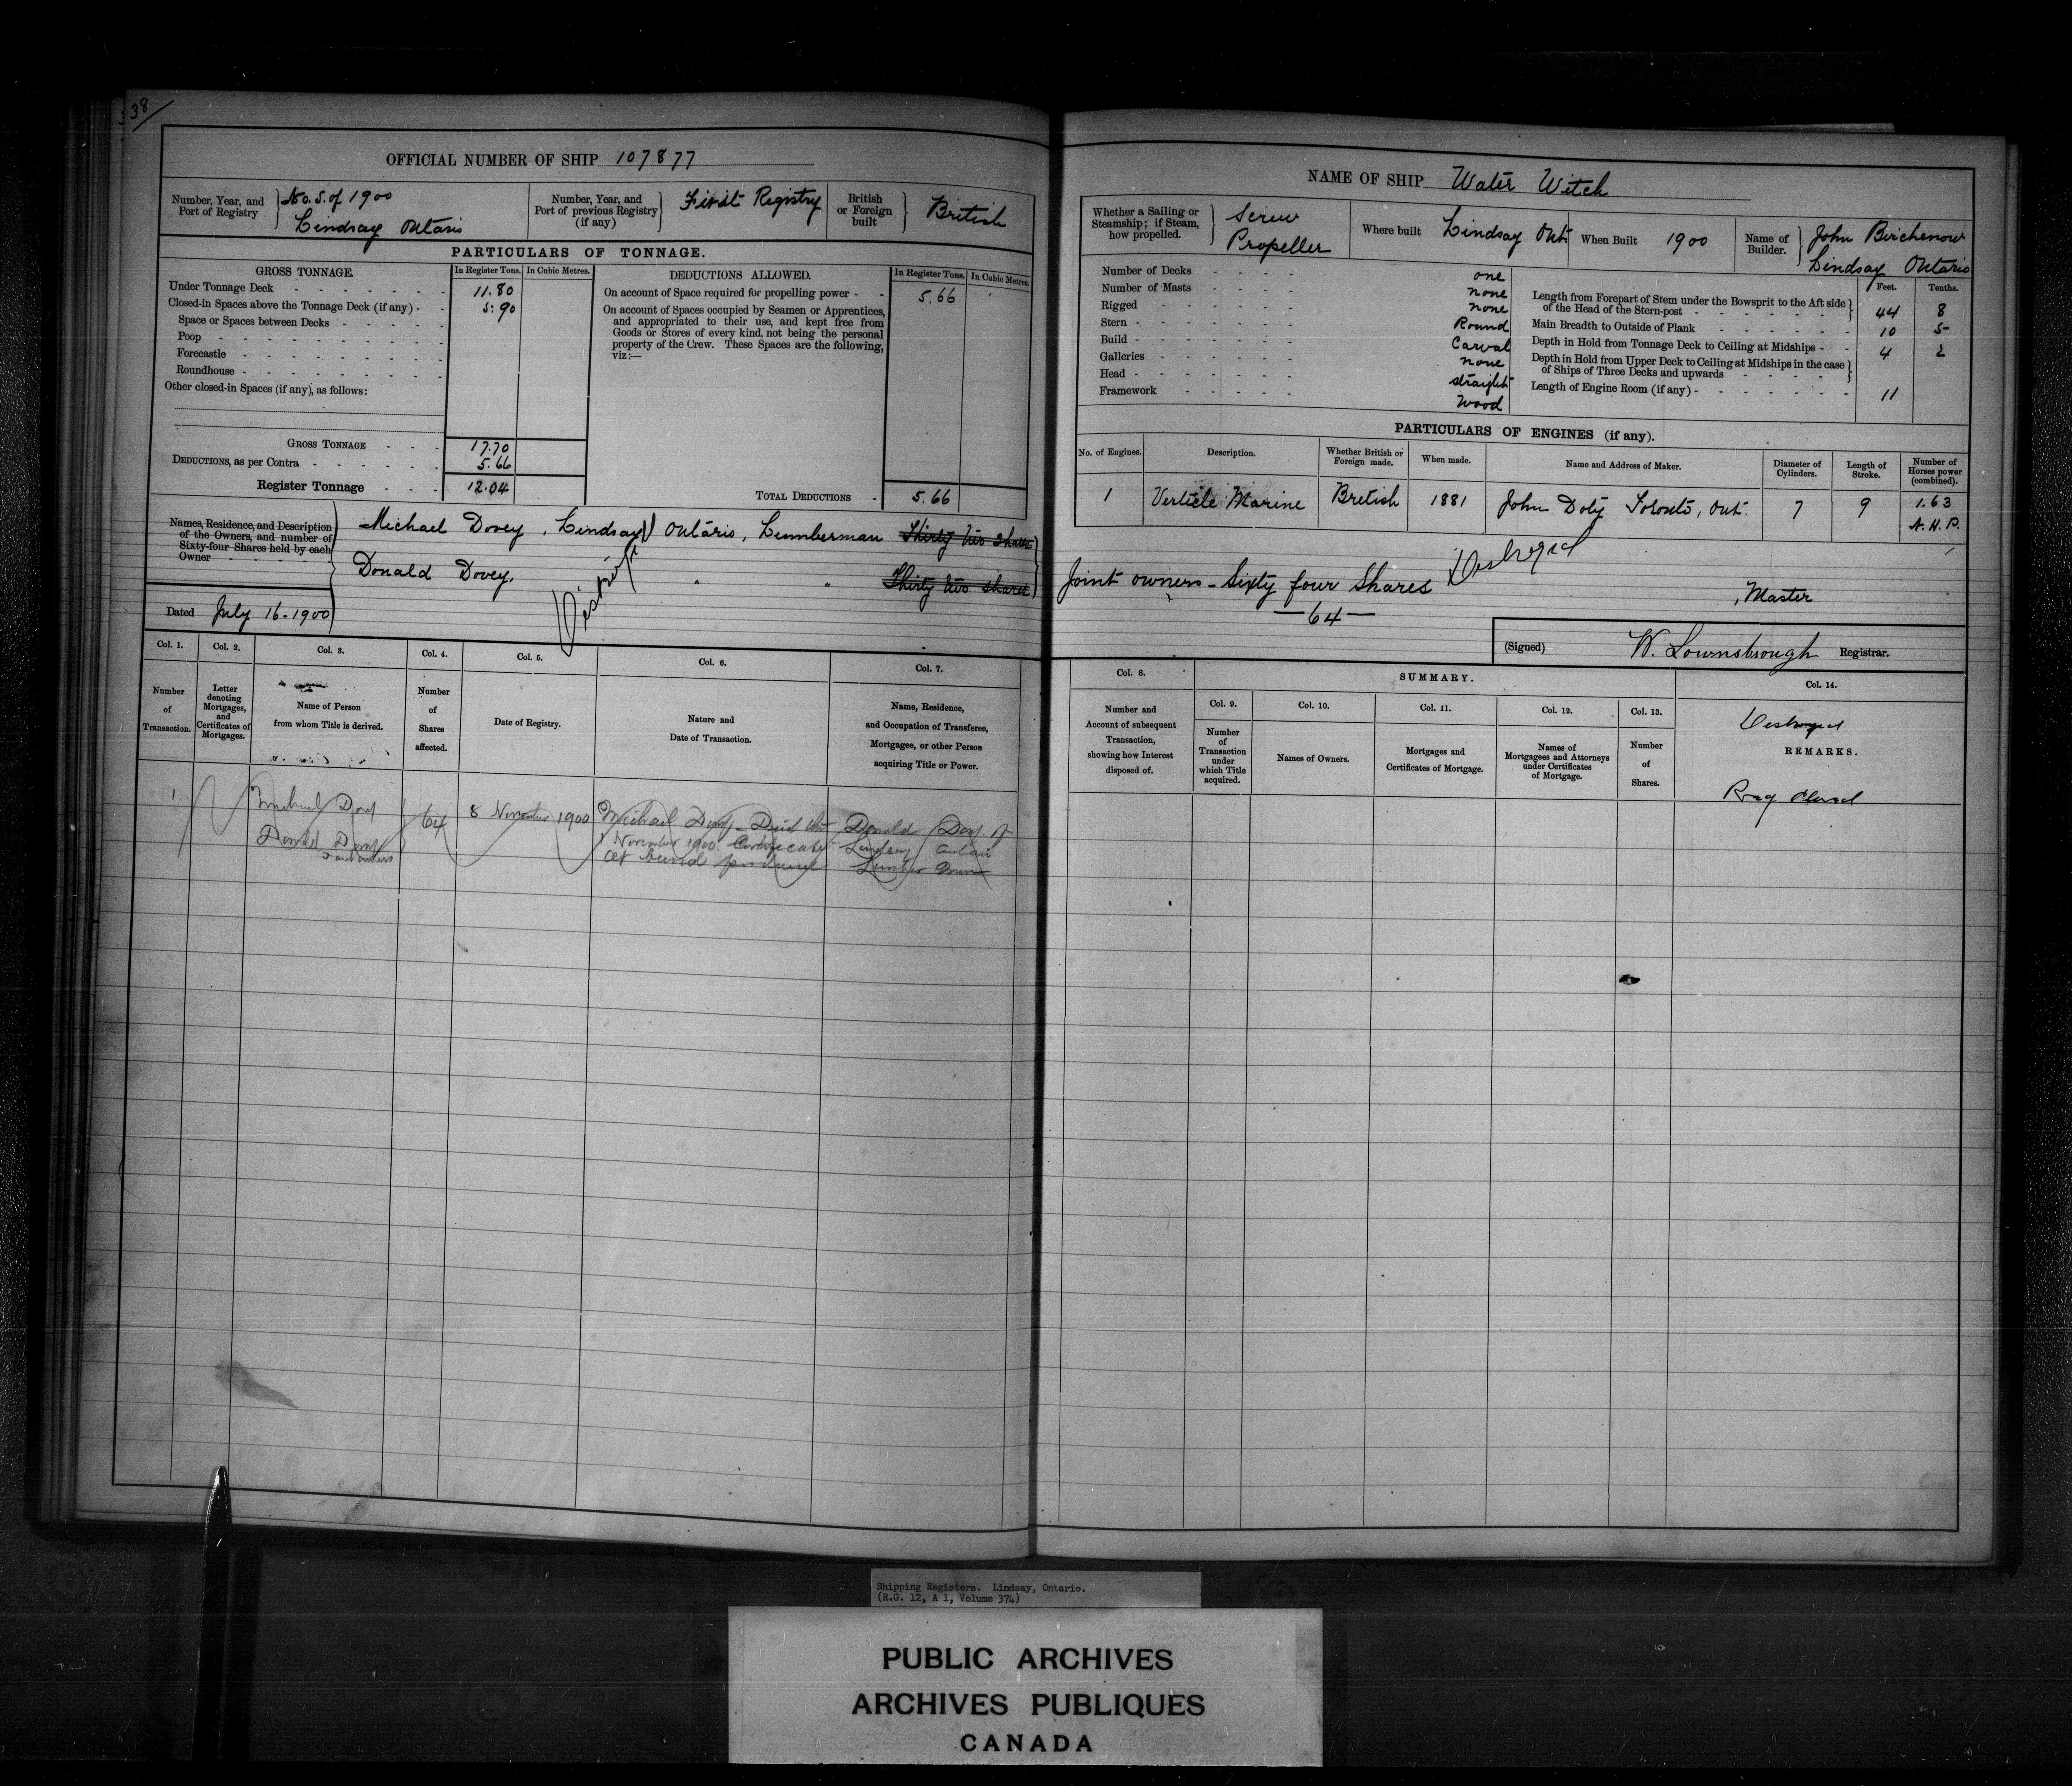 38
OFFICIAL NUMBER OF SHIP 107877
Number, Year, and Port of Registry No. 5. of 1900 Lindsay Ontario
Number, Year, and Port of previous Registry (if any) First Registry
British or Foreign built British
PARTICULARS OF TONNAGE.
GROSS TONNAGE. In Register Tons. In Cubic Metres. DEDUCTIONS ALLOWED. In Register Tons. In Cubic Metres.
Under Tonnage Deck 11.80
Closed-in Spaces above the Tonnage Deck (if any) 5.90
Space or Spaces between Decks
Poop
Forecastle
Roundhouse
Other closed-in Spaces (if any), as follows:
GROSS TONNAGE 17.70
DEDUCTIONS, as per Contra 5.66
Register Tonnage 12.04
On account of Space required for propelling power 5.66
On account of Spaces occupied by Seamen or Apprentices,
and appropriated to their use, and kept free from
Goods or Stores of every kind, not being the personal
property of the Crew. These Spaces are the following,
viz:—
TOTAL DEDUCTIONS 5.66
Names, Residence, and Description
of the Owners, and number of
Sixty-four Shares held by each
Owner
Michael Dovey, Lindsay Ontario, Lumberman Thirty two Shares
Donald Dovey. " " Thirty two shares
Dated July 16-1900
Col. 1. Col. 2. Col. 3. Col. 4. Col. 5. Col. 6. Col. 7.
Number of Transaction.
Letter denoting Mortgages, and Certificates of Mortgages.
Name of Person from whom Title is derived.
Number of Shares affected.
Date of Registry.
Nature and Date of Transaction.
Name, Residence, and Occupation of Transferee, Mortgagee, or other Person acquiring Title or Power.
1 Michael Dovey 64 8 November 1900 Michael Dovey Died the Donald Dovey of
Donald Dovey November 1900. Certificate Lindsay Ontario
Joint owners of burial produced Lumber
NAME OF SHIP Water Witch
Whether a Sailing or Steamship; if Steam, how propelled. Screw Propeller
Where built Lindsay Ont
When Built 1900
Name of Builder. John Birchenow Lindsay Ontario
Number of Decks one
Number of Masts none
Rigged none
Stern Round
Build Carval
Galleries none
Head straight
Framework Wood
Feet. Tenths.
Length from Forepart of Stem under the Bowsprit to the Aft side
of the Head of the Stern-post 44 8
Main Breadth to Outside of Plank 10 5
Depth in Hold from Tonnage Deck to Ceiling at Midships 4 2
Depth in Hold from Upper Deck to Ceiling at Midships in the case
of Ships of Three Decks and upwards
Length of Engine Room (if any) 11
PARTICULARS OF ENGINES (if any).
No. of Engines. Description. Whether British or Foreign made. When made. Name and Address of Maker. Diameter of Cylinders. Length of Stroke. Number of Horses power (combined).
1 Verticle Marine British 1881 John Doty Toronto, Ont. 7 9 1.63 N.H.P.
Joint owners - Sixty four Shares Destroyed
—64—
, Master
(Signed) W. Lownsbrough Registrar.
Col. 8. SUMMARY. Col. 14.
Col. 9. Col. 10. Col. 11. Col. 12. Col. 13.
Number and Account of subsequent Transaction, showing how Interest disposed of.
Number of Transaction under which Title acquired.
Names of Owners.
Mortgages and Certificates of Mortgage.
Names of Mortgagees and Attorneys under Certificates of Mortgage.
Number of Shares.
Destroyed
REMARKS.
Reg Closed
Shipping Registers. Lindsay, Ontario.
(R.G. 12, A 1, Volume 374)
PUBLIC ARCHIVES
ARCHIVES PUBLIQUES
CANADA